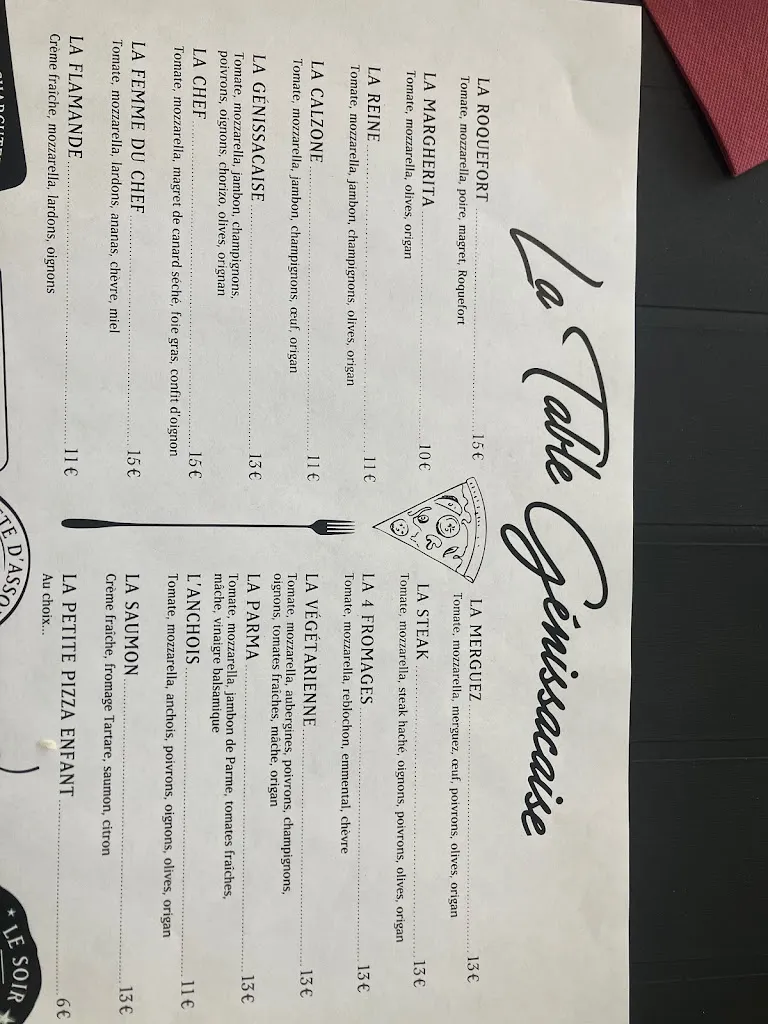 La Table Génissacaise
LA ROQUEFORT 15€
Tomate, mozzarella, poire, magret, Roquefort
LA MARGHERITA 10€
Tomate, mozzarella, olives, origan
LA REINE 11€
Tomate, mozzarella, jambon, champignons, olives, origan
LA CALZONE 11€
Tomate, mozzarella, jambon, champignons, œuf, origan
LA GÉNISSACAISE 13€
Tomate, mozzarella, jambon, champignons,
poivrons, oignons, chorizo, olives, orignan
LA CHEF 15€
Tomate, mozzarella, magret de canard séché, foie gras, confit d'oignon
LA FEMME DU CHEF 15€
Tomate, mozzarella, lardons, ananas, chèvre, miel
LA FLAMANDE 11€
Crème fraîche, mozzarella, lardons, oignons
LA MERGUEZ 13€
Tomate, mozzarella, merguez, œuf, poivrons, olives, origan
LA STEAK 13€
Tomate, mozzarella, steak haché, oignons, poivrons, olives, origan
LA 4 FROMAGES 13€
Tomate, mozzarella, reblochon, emmental, chèvre
LA VÉGÉTARIENNE 13€
Tomate, mozzarella, aubergines, poivrons, champignons,
oignons, tomates fraîches, mâche, origan
LA PARMA 13€
Tomate, mozzarella, jambon de Parme, tomates fraîches,
mâche, vinaigre balsamique
L'ANCHOIS 11€
Tomate, mozzarella, anchois, poivrons, oignons, olives, origan
LA SAUMON 13€
Crème fraîche, fromage Tartare, saumon, citron
LA PETITE PIZZA ENFANT 6€
Au choix...
LE SOIR